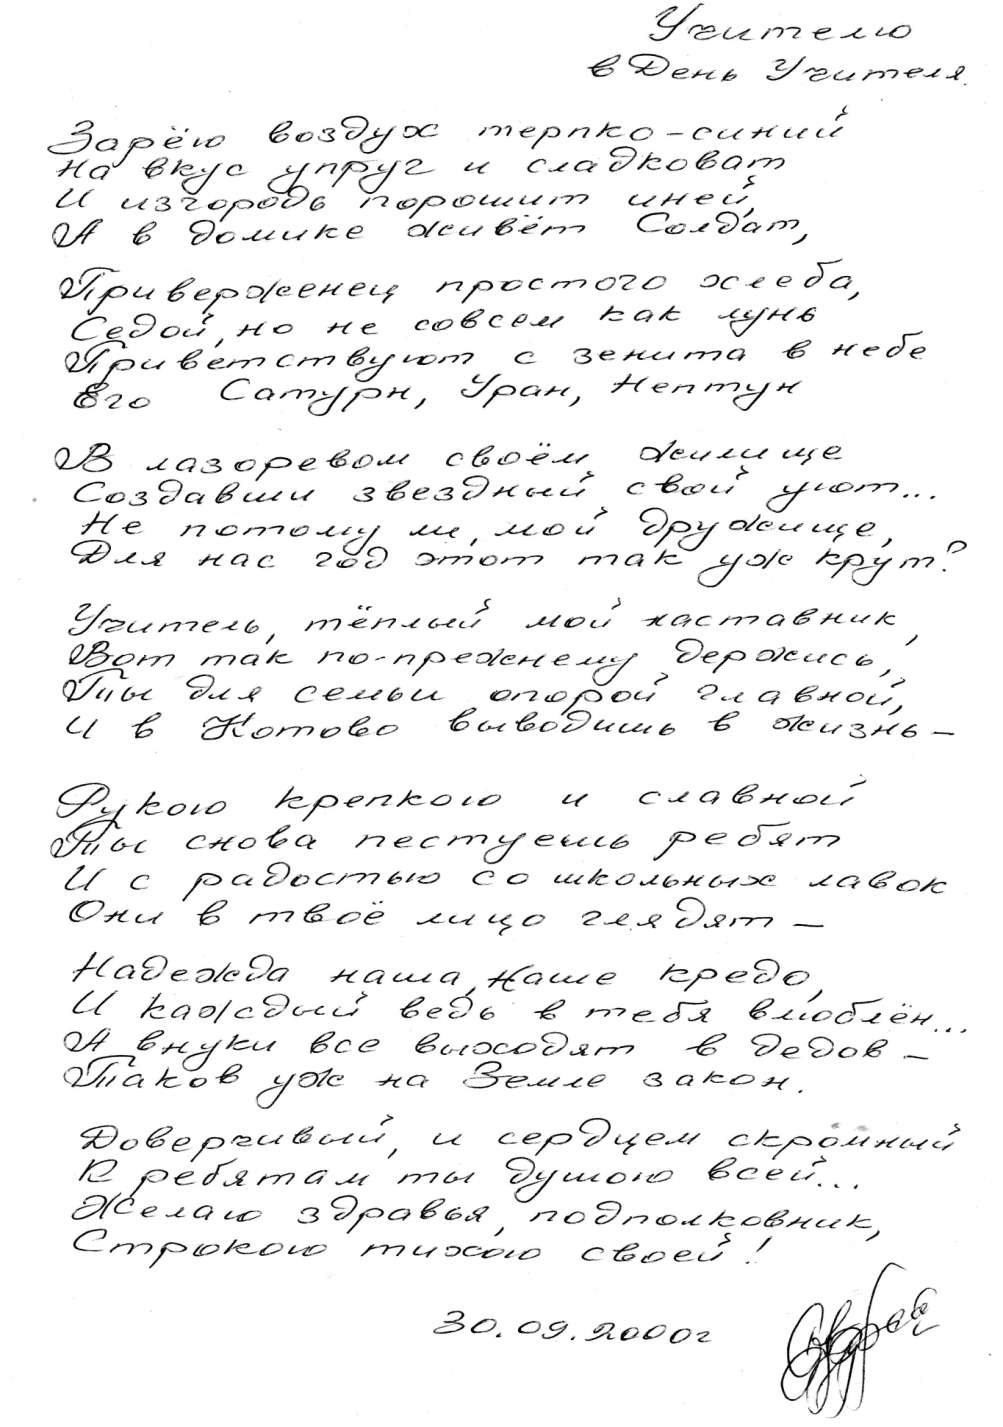 Учителю
в День Учителя.
Зарёю воздух терпко-синий
На вкус упруг и сладковат
И изгородь порошит иней,
А в домике живёт Солдат,
Приверженец простого хлеба,
Седой, но не совсем как лунь
Приветствуют с зенита в небе
Его Сатурн, Уран, Нептун
В лазоревом своём жилище
Создавши звездный свой уют...
Не потому ли, мой дружище,
Для нас год этот так уж крут?
Учитель, тёплый мой наставник,
Вот так по-прежнему держись,
Ты для семьи опорой главной,
И в Котово выводишь в жизнь –
Рукою крепкою и славной
Ты снова пестуешь ребят
И с радостью со школьных лавок
Они в твоё лицо глядят –
Надежда наша, наше кредо,
И каждый ведь в тебя влюблён...
А внуки все выходят в дедов –
Таков уж на Земле закон.
Доверчивый, и сердцем скромный
К ребятам ты душою всей...
Желаю здравья, подполковник,
Строкою тихою своей!
30.09.2000г